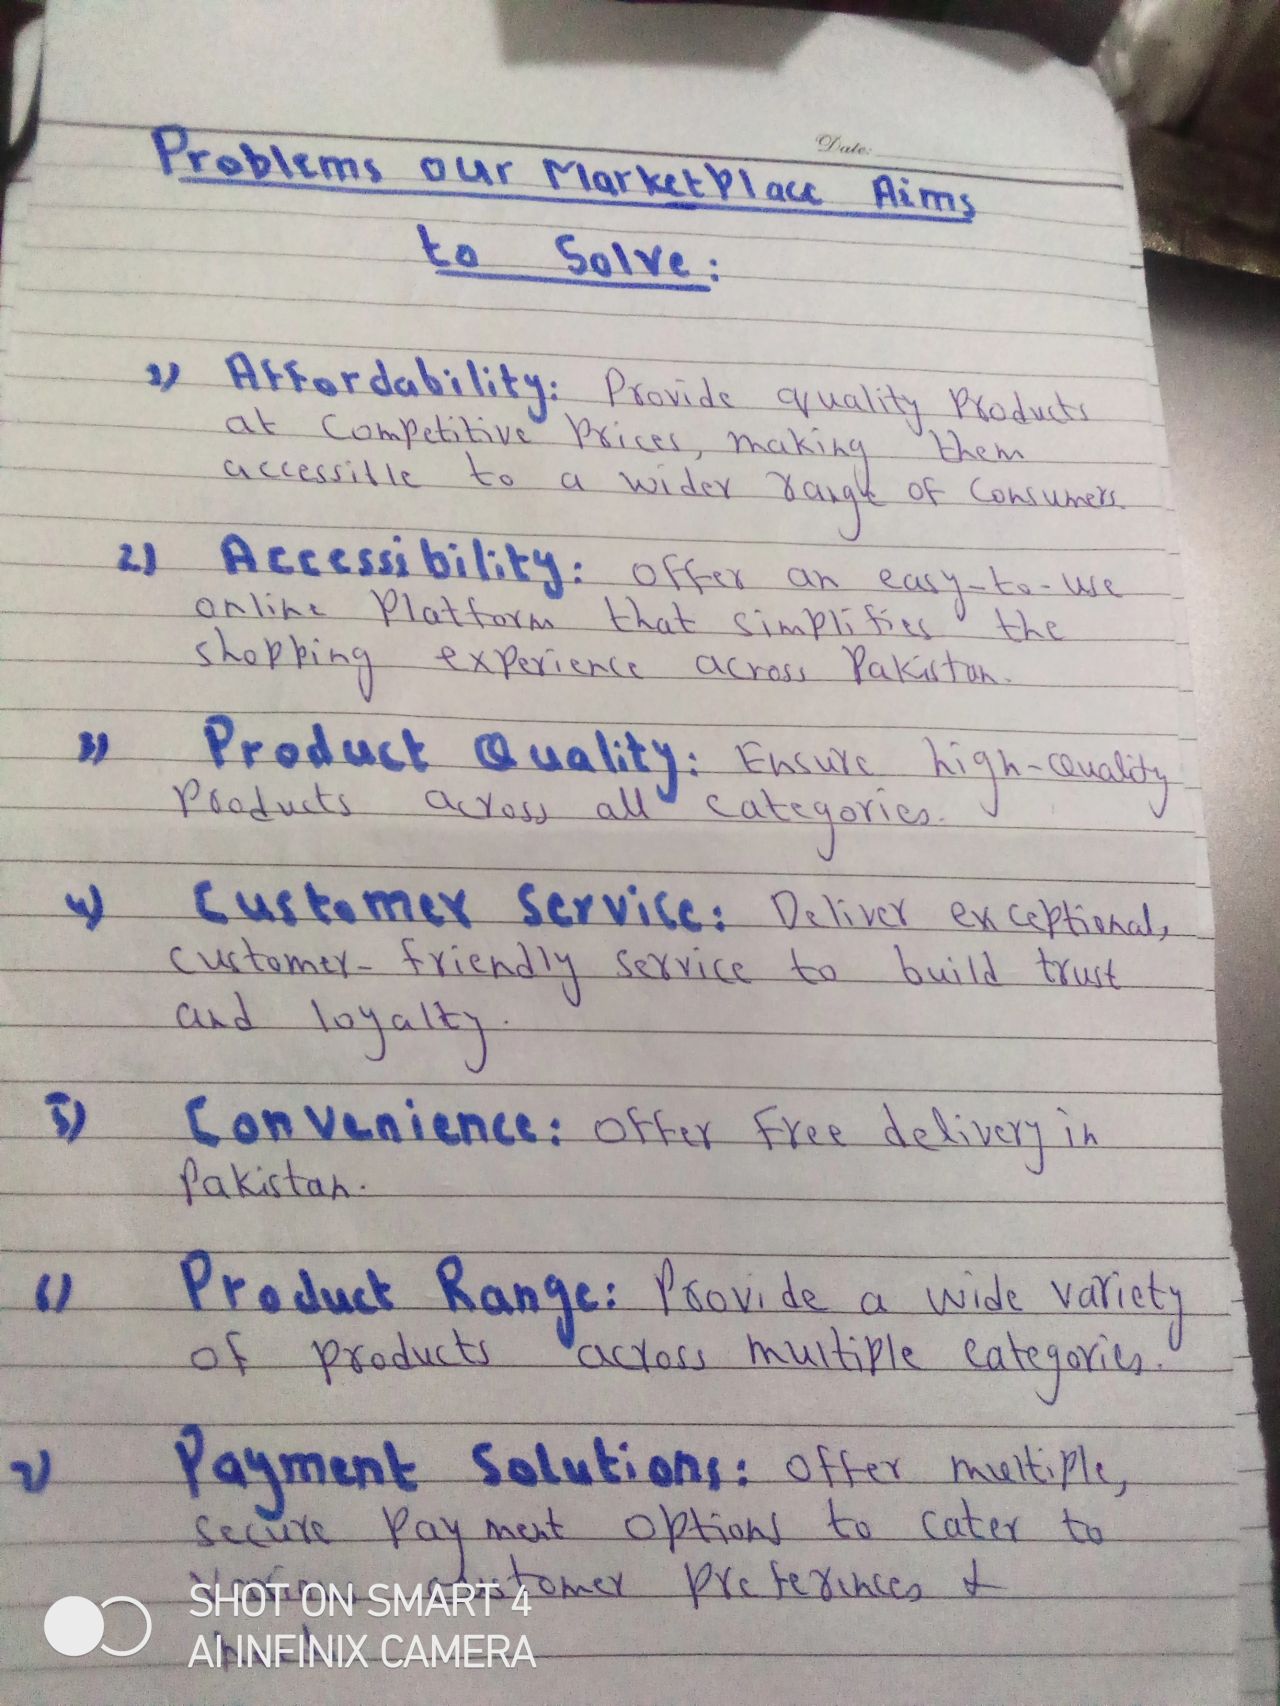 Date:
Problems our Marketplace Aims
to Solve:
1) Affordability: Provide quality Products
at Competitive Prices, making them
accessible to a wider range of Consumers.
2) Accessibility: offer an easy-to-use
online Platform that simplifies the
shopping experience across Pakistan.
3) Product Quality: Ensure high-quality
Products across all categories.
4) Customer Service: Deliver exceptional,
customer-friendly service to build trust
and loyalty.
5) Convenience: offer free delivery in
Pakistan.
6) Product Range: Provide a wide variety
of products across multiple categories.
7) Payment Solutions: offer multiple,
secure Payment options to cater to
customer preferences &
SHOT ON SMART 4
AI INFINIX CAMERA